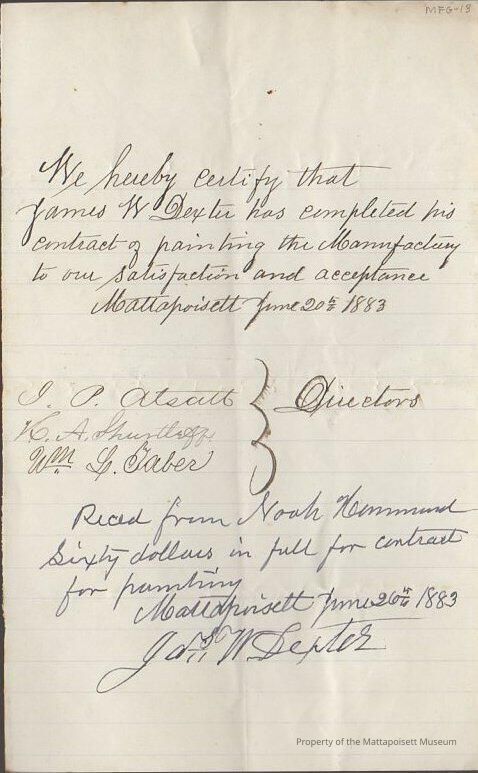 MFG-13
We hereby certify that
James W Dexter has completed his
contract of painting the Mannfactury
to our satisfaction and acceptance
Mattapoisett June 20th 1883
J. P. Atsatt
K. A. Shurtleff
Wm L. Taber
Directors
Reced from Noah Hammond
Sixty dollars in full for contract
for painting
Mattapoisett June 26th 1883
Jas W Dexter
Property of the Mattapoisett Museum